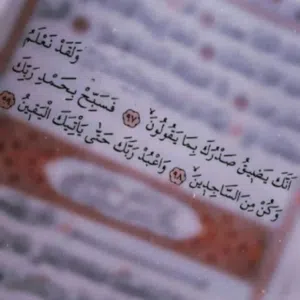 وَلَقَدْ نَعْلَمُ
اَنَّكَ يَضٖيقُ صَدْرُكَ بِمَا يَقُولُونَۙ ﴿٩٧﴾ فَسَبِّحْ بِحَمْدِ رَبِّكَ
وَكُنْ مِنَ السَّاجِدٖينَۙ ﴿٩٨﴾ وَاعْبُدْ رَبَّكَ حَتّٰى يَأْتِيَكَ الْيَقٖينُ ﴿٩٩﴾